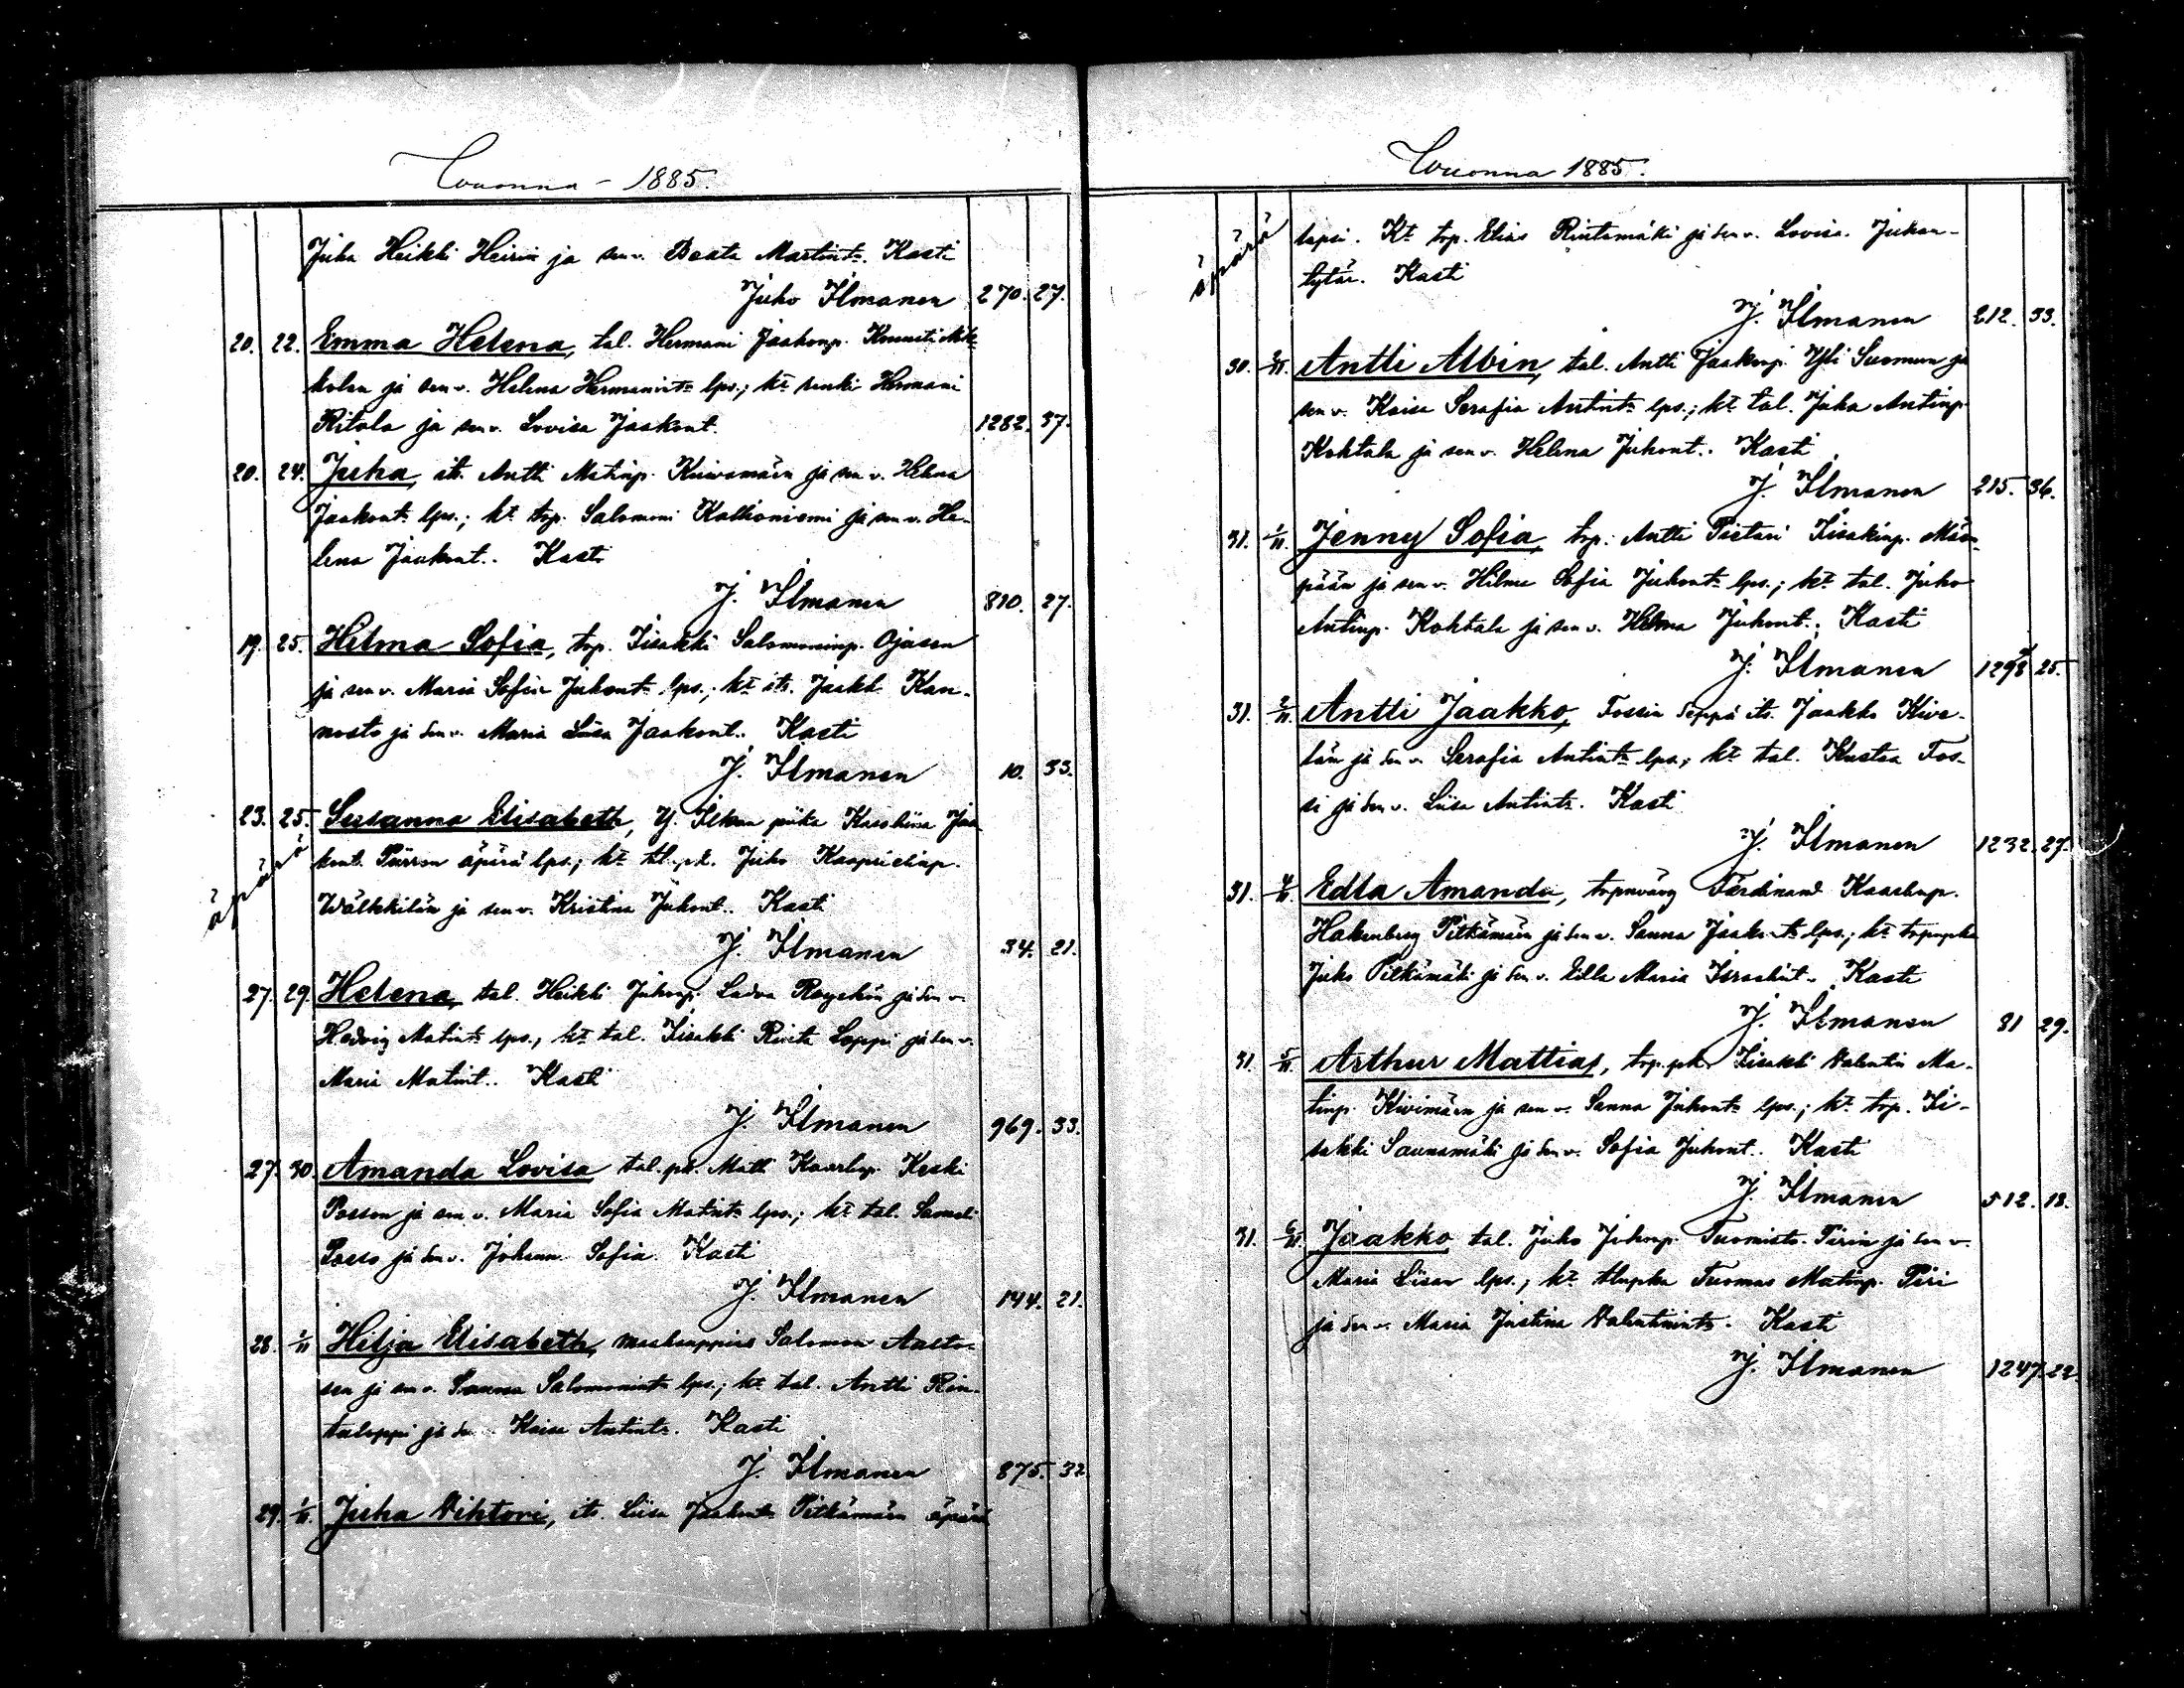 Vuonna - 1885.
Juha Heikki Heirin ja sen v. Beata Martint. Kasti
Juho Ilmanen 270. 27.
20. 22. Emma Helena, tal. Hermani Jaakonp.
kolan ja sen v. Helena Hermanint. lps.; kt. renki Hermani
Ritala ja sen v. Lovisa Jaakont. 1282. 37.
20. 24. Juha, its. Antti Matinp. ja sen v. Helena
Jaakont. lps.; kt. trp. Salomoni Kallioniemi ja sen v. He-
lena Jaakont.. Kasti
J. Ilmanen 810. 27.
19. 25. Hilma Sofia, trp. Iisakki Salomoninp. Ojasen
ja sen v. Maria Sofia Juhont. lps.; kt. its. Jaakk. Kan-
nosto ja sen v. Maria Liisa Jaakont.. Kasti
J. Ilmanen 10. 33.
23. 25. Susanna Elisabeth, Y. Ilkan piika Karoliina Jaa
äpärä kont. äpärä lps.; kt. tal. pk. Juho Kaaprielinp.
Wälkkilän ja sen v. Kristina Juhont.. Kasti
J. Ilmanen 34. 21.
27. 29. Helena, tal. Heikki Juhonp. ja sen v.
Hedvig Matint. lps., kt. tal. Iisakki Rinta Loppi ja sen v.
Maria Matint.. Kasti
J. Ilmanen 969. 33.
27. 30. Amanda Lovisa tal. pk. Matti Kaarlep. Keski
Posson ja sen v. Maria Sofia Matint. lps.; kt. tal. Sameli
Posso ja sen v. Johanna Sofia. Kasti
J. Ilmanen 144. 21.
28. 1/11 Hilja Elisabeth, Salomon Aalto-
sen ja sen v. Sanna Salomonint. lps.; kt. tal. Antti Rin-
taloppi ja sen Kaisa Antint. Kasti
J. Ilmanen 875. 32
29. 1/11. Juha Vihtori, its. Liisa Jaakont. Pitkämäen äpärä
Vuonna 1885.
äpärä lapsi. Kt. trp. Elias Rintamäki ja sen v. Lovisa Juhan-
tytär. Kasti
J. Ilmanen 212. 33.
30. 2/11. Antti Albin, tal. Antti Jaakonp. Yli Suomun ja
sen v. Kaisa Serafia Antint. lps.; kt. tal. Juha Antinp.
Kohtala ja sen v. Helena Juhont.. Kasti
J. Ilmanen 215. 36.
31. 1/11. Jenny Sofia, trp. Antti Pietari Iisakinp. Mäen-
pään ja sen v. Hilma Sofia Juhont. lps.; kt. tal. Juho
Antinp. Kohtala ja sen v. Helena Juhont. Kasti
J. Ilmanen 1298 25.
31. 2/11. Antti Jaakko, Fossin seppä its. Jaakko Kive-
tän ja sen v. Serafia Antint. lps.; kt. tal. Kustaa Fos-
si ja sen v. Liisa Antint. Kasti
J. Ilmanen 1232. 27.
31. 4/11. Edla Amanda, trpnvävy Ferdinand Kaarlenp.
Hakenberg Pitkämäen ja sen v. Sanna Jaakont. lps.; kt. trpnpka
Juho Pitkämäki ja sen v. Edla Maria Kasti
J. Ilmanen 81 29.
31. 5/11. Arthur Mattias, trp. pk. Iisakki Valentin Ma-
tinp. Kivimäen ja sen v. Sanna Juhont. lps.; kt. trp. Ii-
sakki Saunamäki ja sen v. Sofia Juhont.. Kasti
J. Ilmanen 512. 18.
31. 6/11. Jaakko tal. Juho Juhonp. Tuomisto-Pirin ja sen v.
Maria Liisan lps.; kt. tlnpka Tuomas Matinp. Piri
ja sen v. Maria Justina Valentinint. Kasti
J. Ilmanen 1247. 22.